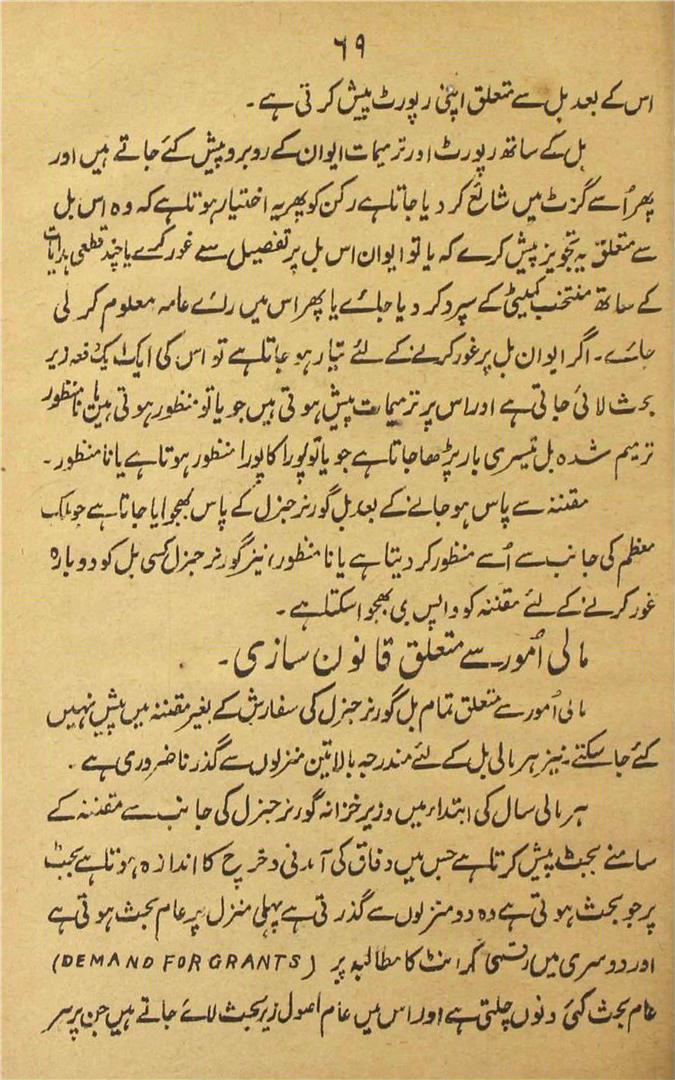 ٦٩
اس کے بعد بل سے متعلق اپنی رپورٹ پیش کرتی ہے۔
بل کے ساتھ رپورٹ اور ترمیمات ایوان کے روبرو پیش کئے جاتے ہیں اور
پھر اُسے گزٹ میں شائع کر دیا جاتا ہے رکن کو پھر یہ اختیار ہوتا ہے کہ وہ اس بل
سے متعلق یہ تجویز پیش کرے کہ یا تو ایوان اس بل پر تفصیل سے غور کرے یا چند قطعی ہدایات
کے ساتھ منتخب کمیٹی کے سپرد کر دیا جائے یا پھر اس میں رائے عامہ معلوم کر لی
جائے۔ اگر ایوان بل پر غور کرنے کے لئے تیار ہو جاتا ہے تو اس کی ایک ایک دفعہ زیر
بحث لائی جاتی ہے اور اس پر ترمیمات پیش ہوتی ہیں جو یا تو منظور ہوتی ہیں یا نامنظور
ترمیم شدہ بل تیسری بار پڑھا جاتا ہے جو یا تو پورا کا پورا منظور ہوتا ہے یا نامنظور۔
مقننہ سے پاس ہو جانے کے بعد بل گورنر جنرل کے پاس بھجوایا جاتا ہے جو ملک
معظم کی جانب سے اُسے منظور کر دیتا ہے یا نامنظور، نیز گورنر جنرل کسی بل کو دوبارہ
غور کرنے کے لئے مقننہ کو واپس بی بھجوا سکتا ہے۔
مالی اُمور سے متعلق قانون سازی۔
مالی اُمور سے متعلق تمام بل گورنر جنرل کی سفارش کے بغیر مقننہ میں پیش نہیں
کئے جا سکتے۔ نیز ہر مالی بل کے لئے مندرجہ بالا تین منزلوں سے گذرنا ضروری ہے۔
ہر مالی سال کی ابتداء میں وزیر خزانہ گورنر جنرل کی جانب سے مقننہ کے
سامنے بجٹ پیش کرتا ہے جس میں وفاق کی آمدنی و خرچ کا اندازہ ہوتا ہے بجٹ
پر جو بحث ہوتی ہے وہ دو منزلوں سے گذرتی ہے پہلی منزل پر عام بحث ہوتی ہے
اور دوسری میں رقمی گرانٹ کا مطالبہ پر (DEMAND FOR GRANTS)
عام بحث کئی دنوں چلتی ہے اور اس میں عام اصول زیر بحث لائے جاتے ہیں جن پر سر